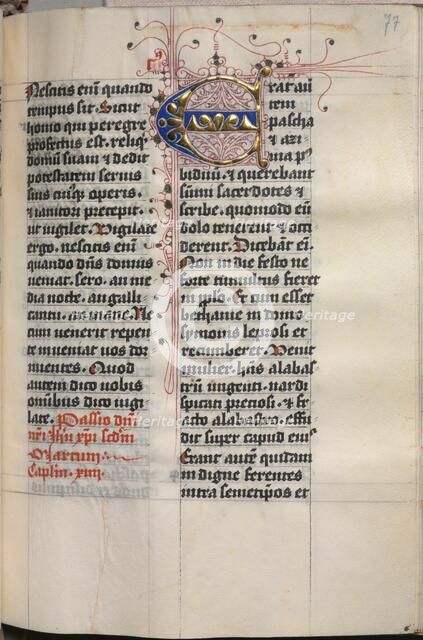 77
Nescitis eni quando
tempus sit. Sicut
homo qui peregre
profectus est. reliqt
domu suam & dedit
potestatem servis
suis cuiusq operis.
& ianitori precepit
ut vigilet. Vigilate
ergo. nescitis eni
quando dns domus
veniat. sero. an me
dia nocte. an galli
cantu. an mane. Ne
cum venerit repen
te inveniat vos dor
mientes. Quod
autem dico vobis
omibus dico vigi
late. Passio dni
nri ihu xpi scdm
Marcum.
Caplm. xiiii.
Erat au
tem
pascha
& azi
ma p9
biduu. & querebant
sumi sacerdotes &
scribe. quomodo eu
dolo tenerent & occi
derent. Dicebat eni.
Non in die festo ne
forte tumultus fieret
in pplo. & cum esset
bethanie in domo
symonis leprosi et
recumberet. Venit
mulier. hns alabas
tru ungenti. nardi
spicati preciosi. & fr
acto alabastro. effu
dit super capud eius
Erant aute quidam
indigne ferentes
intra semetipsos et
heritage
Heritage